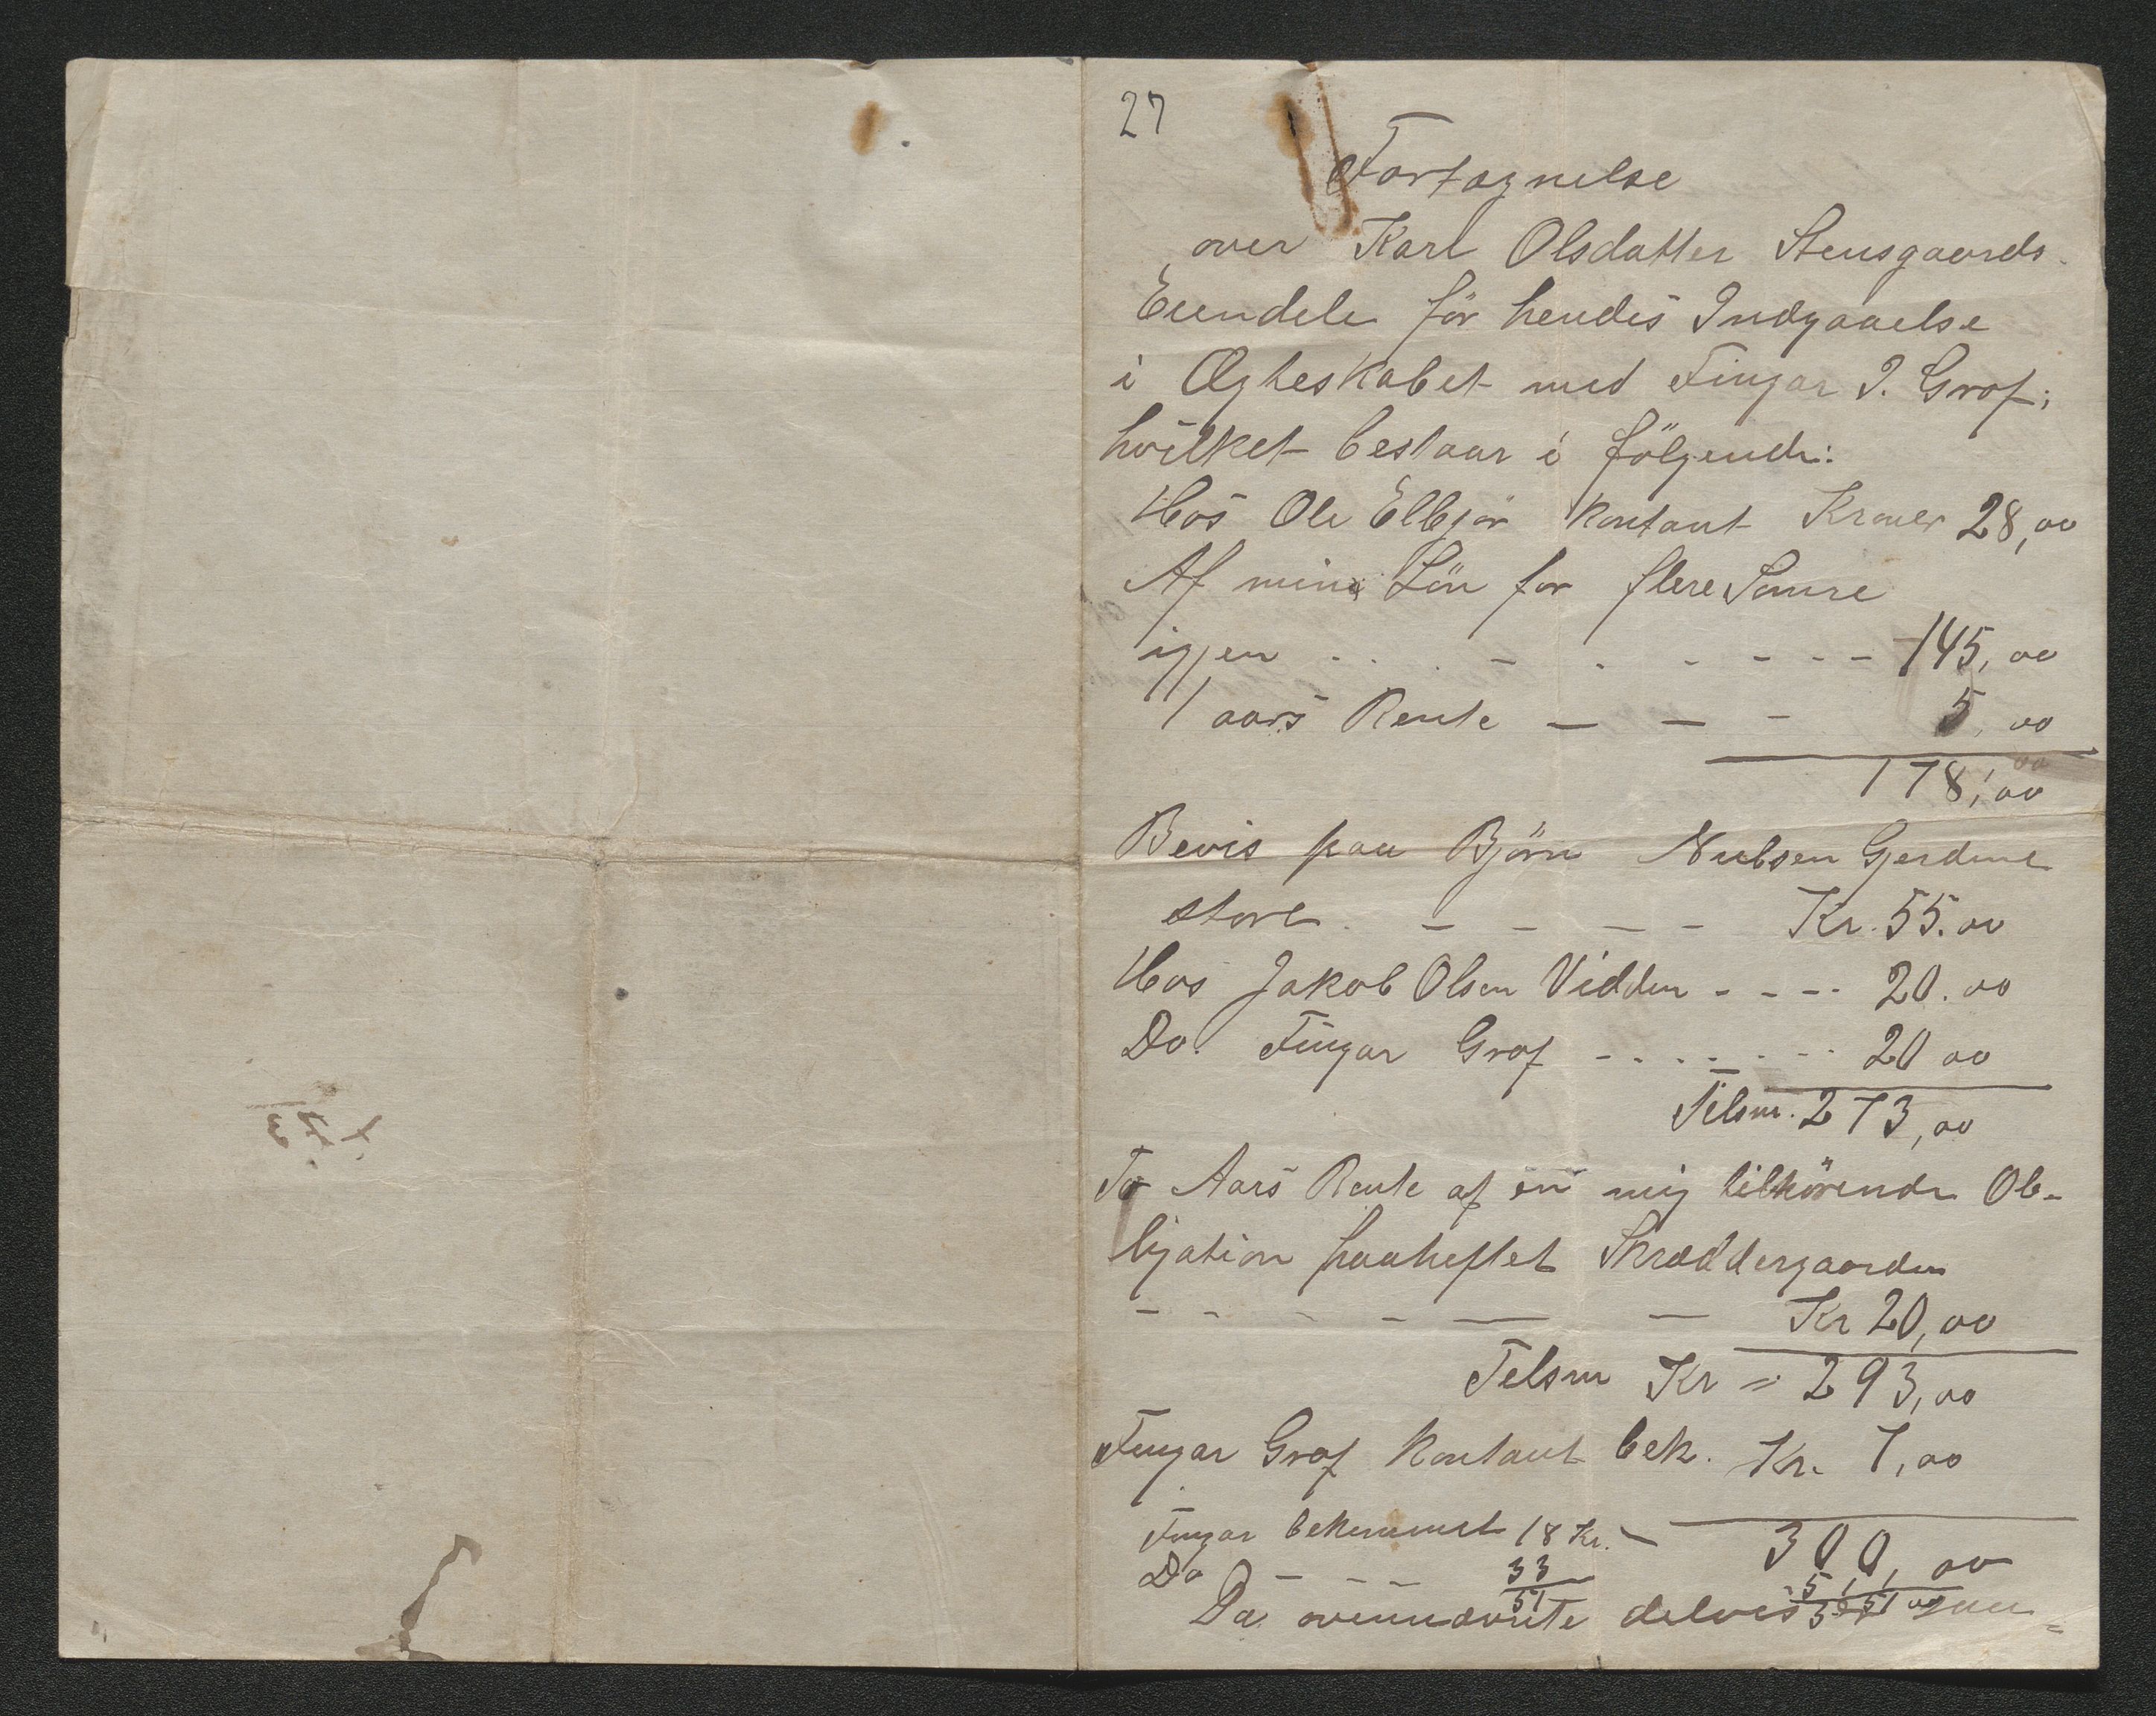 27
Fortegnelse
over Kari Olsdatter Stensgaards
Eiendele för hendes Indgaaelse
i Ægteskabet med Fingar I. Grøf;
hvilket bestaar i følgende:
Hos Ole Elbjør kontant Kroner 28,00
Af mine Lön for flere Somre
igjen - - - - 145,00
1 aars Rente — — - 5,00
178,00
Bevis paa Björn Nielsen Gjerdene
store. - - - - Kr. 55.00
Hos Jakob Olsen Vidden - - - - 20.00
Do. Fingar Grøf - - - - 20 00
Tilsm. 273,00
To Aars Rente af en mig tilhörende Ob-
ligation paaheftet Skræddergaarden
- - - - — — Kr 20,00
Tilsm Kr = 293,00
Fingar Grøf kontant bek. Kr. 7,00
Fingar bekommet 18 Kr. — 300,00
Do - - - 33
51
Da ovennævnte delvis
+73